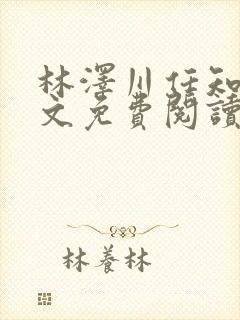 林澤川任知
文免費閱讀
林養林